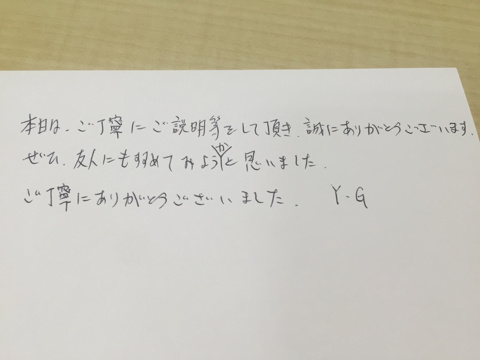 本日は、ご丁寧にご説明等をして頂き、誠にありがとうございます。
ぜひ、友人にもすすめてみようかと思いました。
ご丁寧にありがとうございました。 Y.G